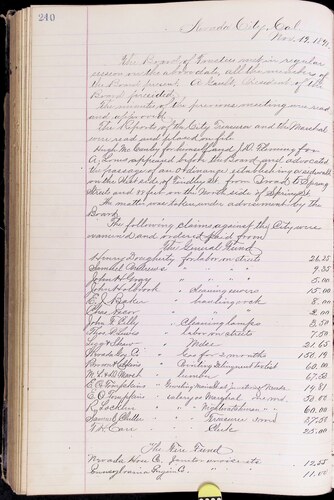 240
Nevada City, Cal
Nov. 19, 189
The Board of Trustees met in regular
session on the above date, all the members of
the Board present. A. Gault, President of the
Board presided.
The minutes of the previous meeting were read
and approved.
The Reports of the City Treasurer and the Marshal
were read and placed on file.
Hugh for himself and J.D. Fleming for
appeared before the Board and advocated
the passage of an Ordinance establishing a sidewalk
on the West side of St. from Broad to Spring
Street and on the North side of Spring St.
The matter was taken under advisement by the
Board.
The following claims against the City were
examined and ordered paid from
The General Fund
Henry Dougherty for labor on streets 26.25
Samuel Andrews " " " " 9.25
John H. Gray " " " " 5.00
John Holbrook " " Cleaning sewers 15.00
E.J. Baker " " rock 8.00
Rear " " 2.00
John T. " Cleaning lamps 2.50
Davis " labor on streets 7.50
Legg & Shaw " Mdse 21.65
" Gas for 2 month 150.19
Brown & Calkins " Printing Delinquent list 60.00
W. L. & D. Marsh " lumber 67.50
E.O. Tompkins " 14.81
E.O. Tompkins " salary as Marshal 50.00
" " Nightwatchman " " 60.00
" " Treasurer 37.50
T.H. Carr " " Clerk 25.00
The Fire Fund
Nevada Hose Co. 12.55
Pennsylvania Engine C. " " " 11.00